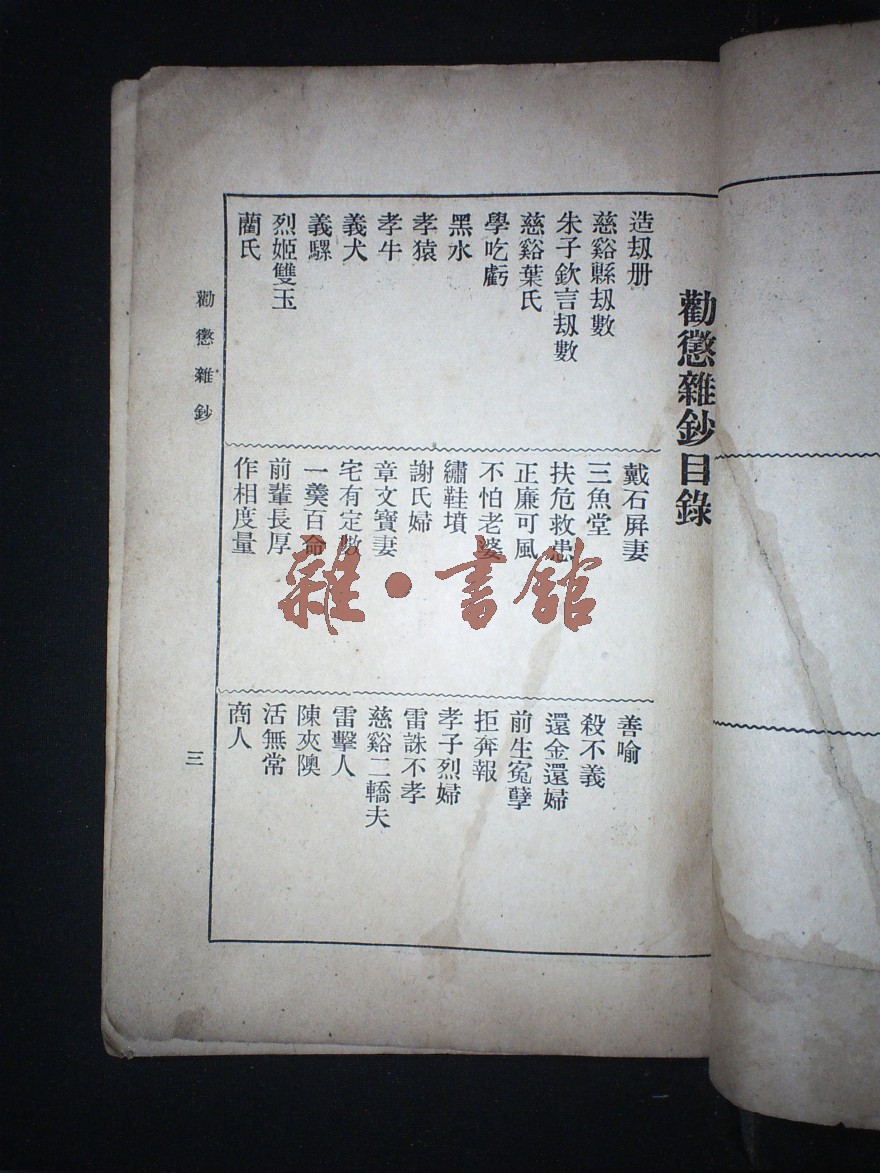 勸懲雜鈔目錄
造刼册
慈谿縣刼數
朱子欽言刼數
慈谿葉氏
學吃虧
黑水
孝猿
孝牛
義犬
義騾
烈姬雙玉
藺氏
戴石屏妻
三魚堂
扶危救患
正廉可風
不怕老婆
繡鞋墳
謝氏婦
章文寶妻
宅有定數
一羮百命
前輩長厚
作相度量
善喻
殺不義
還金還婦
前生冤孽
拒奔報
孝子烈婦
雷誅不孝
慈谿二轎夫
雷擊人
陳夾隩
活無常
商人
勸懲雜鈔
三
雜·書館